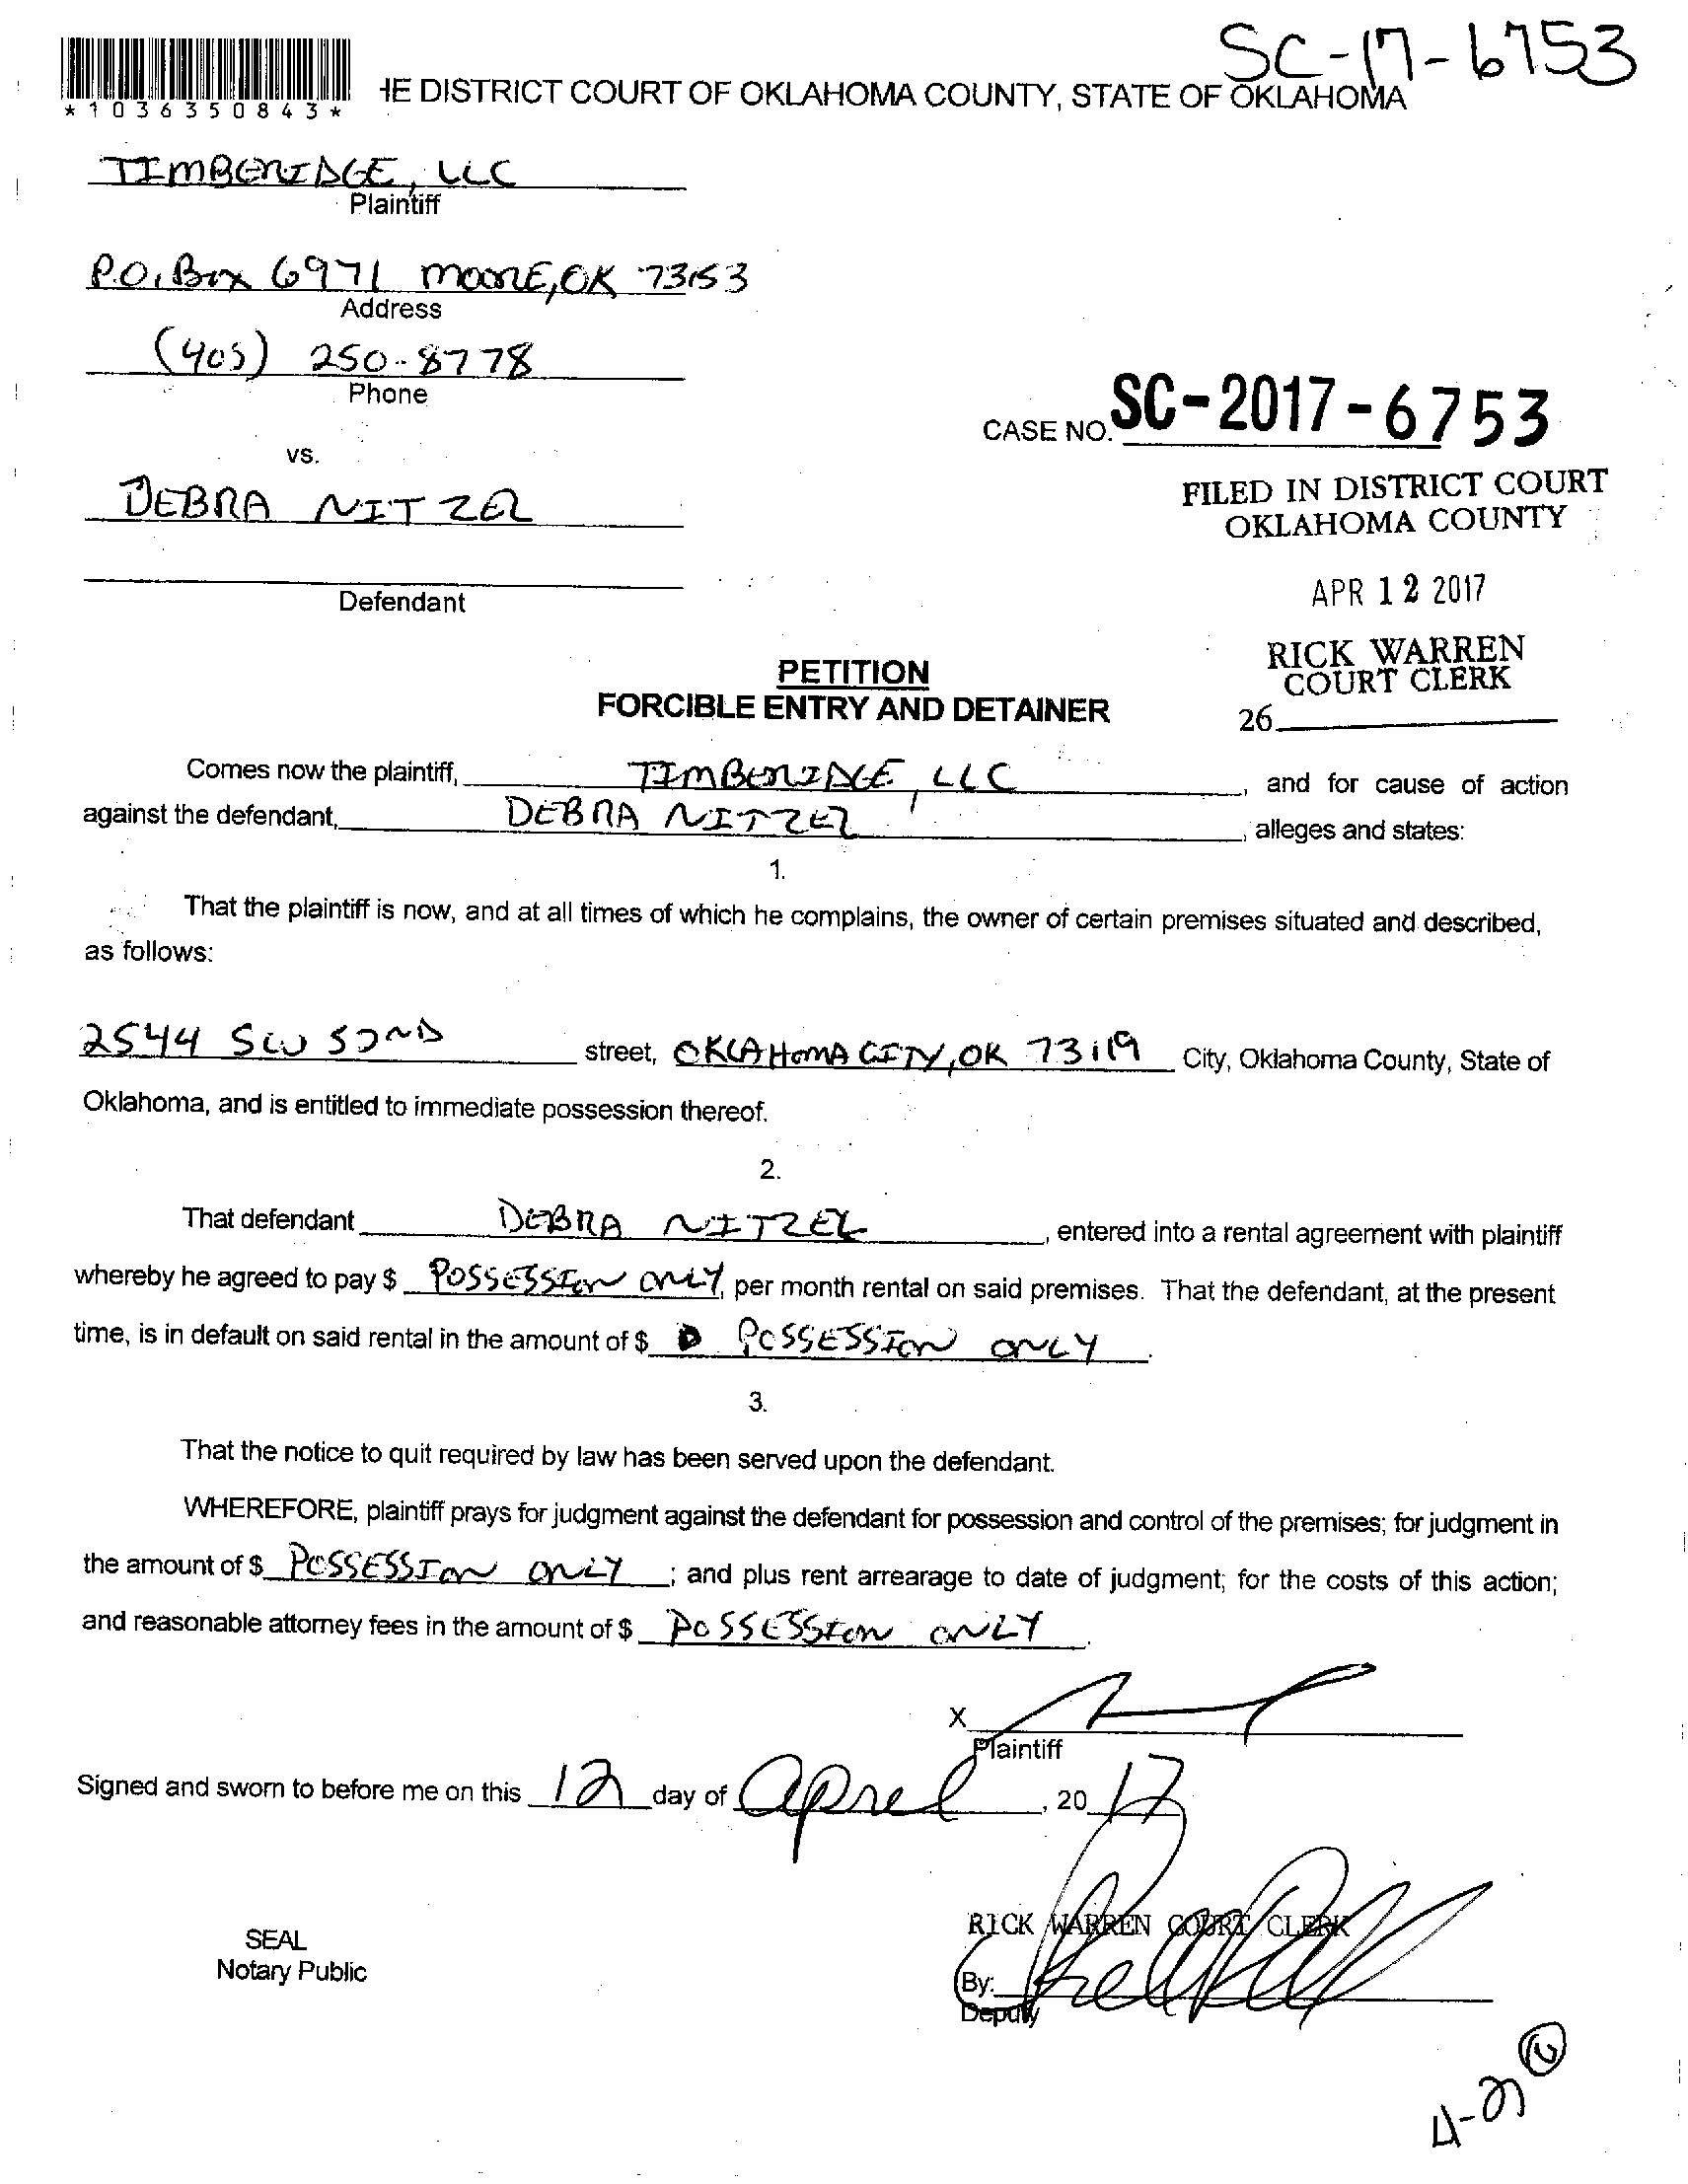 SC-17-6753
*1036350843*
HE DISTRICT COURT OF OKLAHOMA COUNTY, STATE OF OKLAHOMA
TIMBERIDGE, LLC
Plaintiff
P.O. Box 6971 MOORE, OK 73153
Address
(405) 250-8778
Phone
CASE NO. SC-2017-6753
vs.
DEBRA NITZEL
FILED IN DISTRICT COURT
OKLAHOMA COUNTY
Defendant
APR 12 2017
RICK WARREN
COURT CLERK
26
PETITION
FORCIBLE ENTRY AND DETAINER
Comes now the plaintiff, TIMBERIDGE, LLC, and for cause of action
against the defendant, DEBRA NITZEL, alleges and states:
1.
That the plaintiff is now, and at all times of which he complains, the owner of certain premises situated and described,
as follows:
2544 SW 52ND street, OKLAHOMA CITY, OK 73119 City, Oklahoma County, State of
Oklahoma, and is entitled to immediate possession thereof.
2.
That defendant DEBRA NITZEL, entered into a rental agreement with plaintiff
whereby he agreed to pay $ POSSESSION ONLY, per month rental on said premises. That the defendant, at the present
time, is in default on said rental in the amount of $ POSSESSION ONLY.
3.
That the notice to quit required by law has been served upon the defendant.
WHEREFORE, plaintiff prays for judgment against the defendant for possession and control of the premises; for judgment in
the amount of $ POSSESSION ONLY; and plus rent arrearage to date of judgment; for the costs of this action;
and reasonable attorney fees in the amount of $ POSSESSION ONLY.
X
Plaintiff
Signed and sworn to before me on this 12 day of April, 2017
RICK WARREN COURT CLERK
SEAL
Notary Public
By:
Deputy